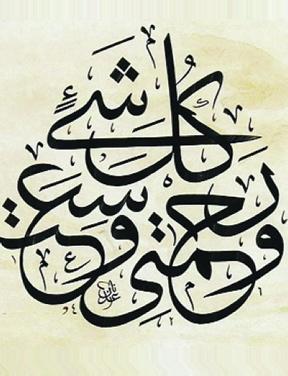 ورحمتي وسعت
كل شيء